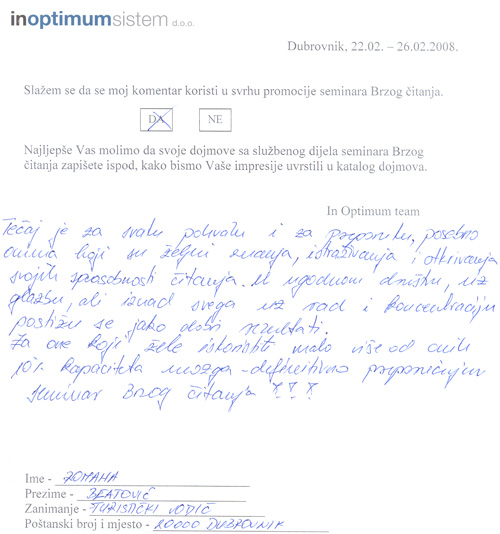 inoptimumsistem d.o.o.
Dubrovnik, 22.02. – 26.02.2008.
Slažem se da se moj komentar koristi u svrhu promocije seminara Brzog čitanja.
DA NE
Najljepše Vas molimo da svoje dojmove sa službenog dijela seminara Brzog
čitanja zapišete ispod, kako bismo Vaše impresije uvrstili u katalog dojmova.
In Optimum team
Tečaj je za svaku pohvalu i za preporuku, posebno
onima koji su željni znanja, istraživanja i otkrivanja
svojih sposobnosti čitanja. U ugodnom društvu, uz
glazbu, ali iznad svega uz rad i koncentraciju
postižu se jako dobri rezultati.
Za one koji žele iskoristiti malo više od onih
10% kapaciteta mozga - definitivno preporučujem
seminar Brzog čitanja !!!
Ime -
Prezime - BEATOVIĆ
Zanimanje - TURISTIČKI VODIČ
Poštanski broj i mjesto - 20000 DUBROVNIK